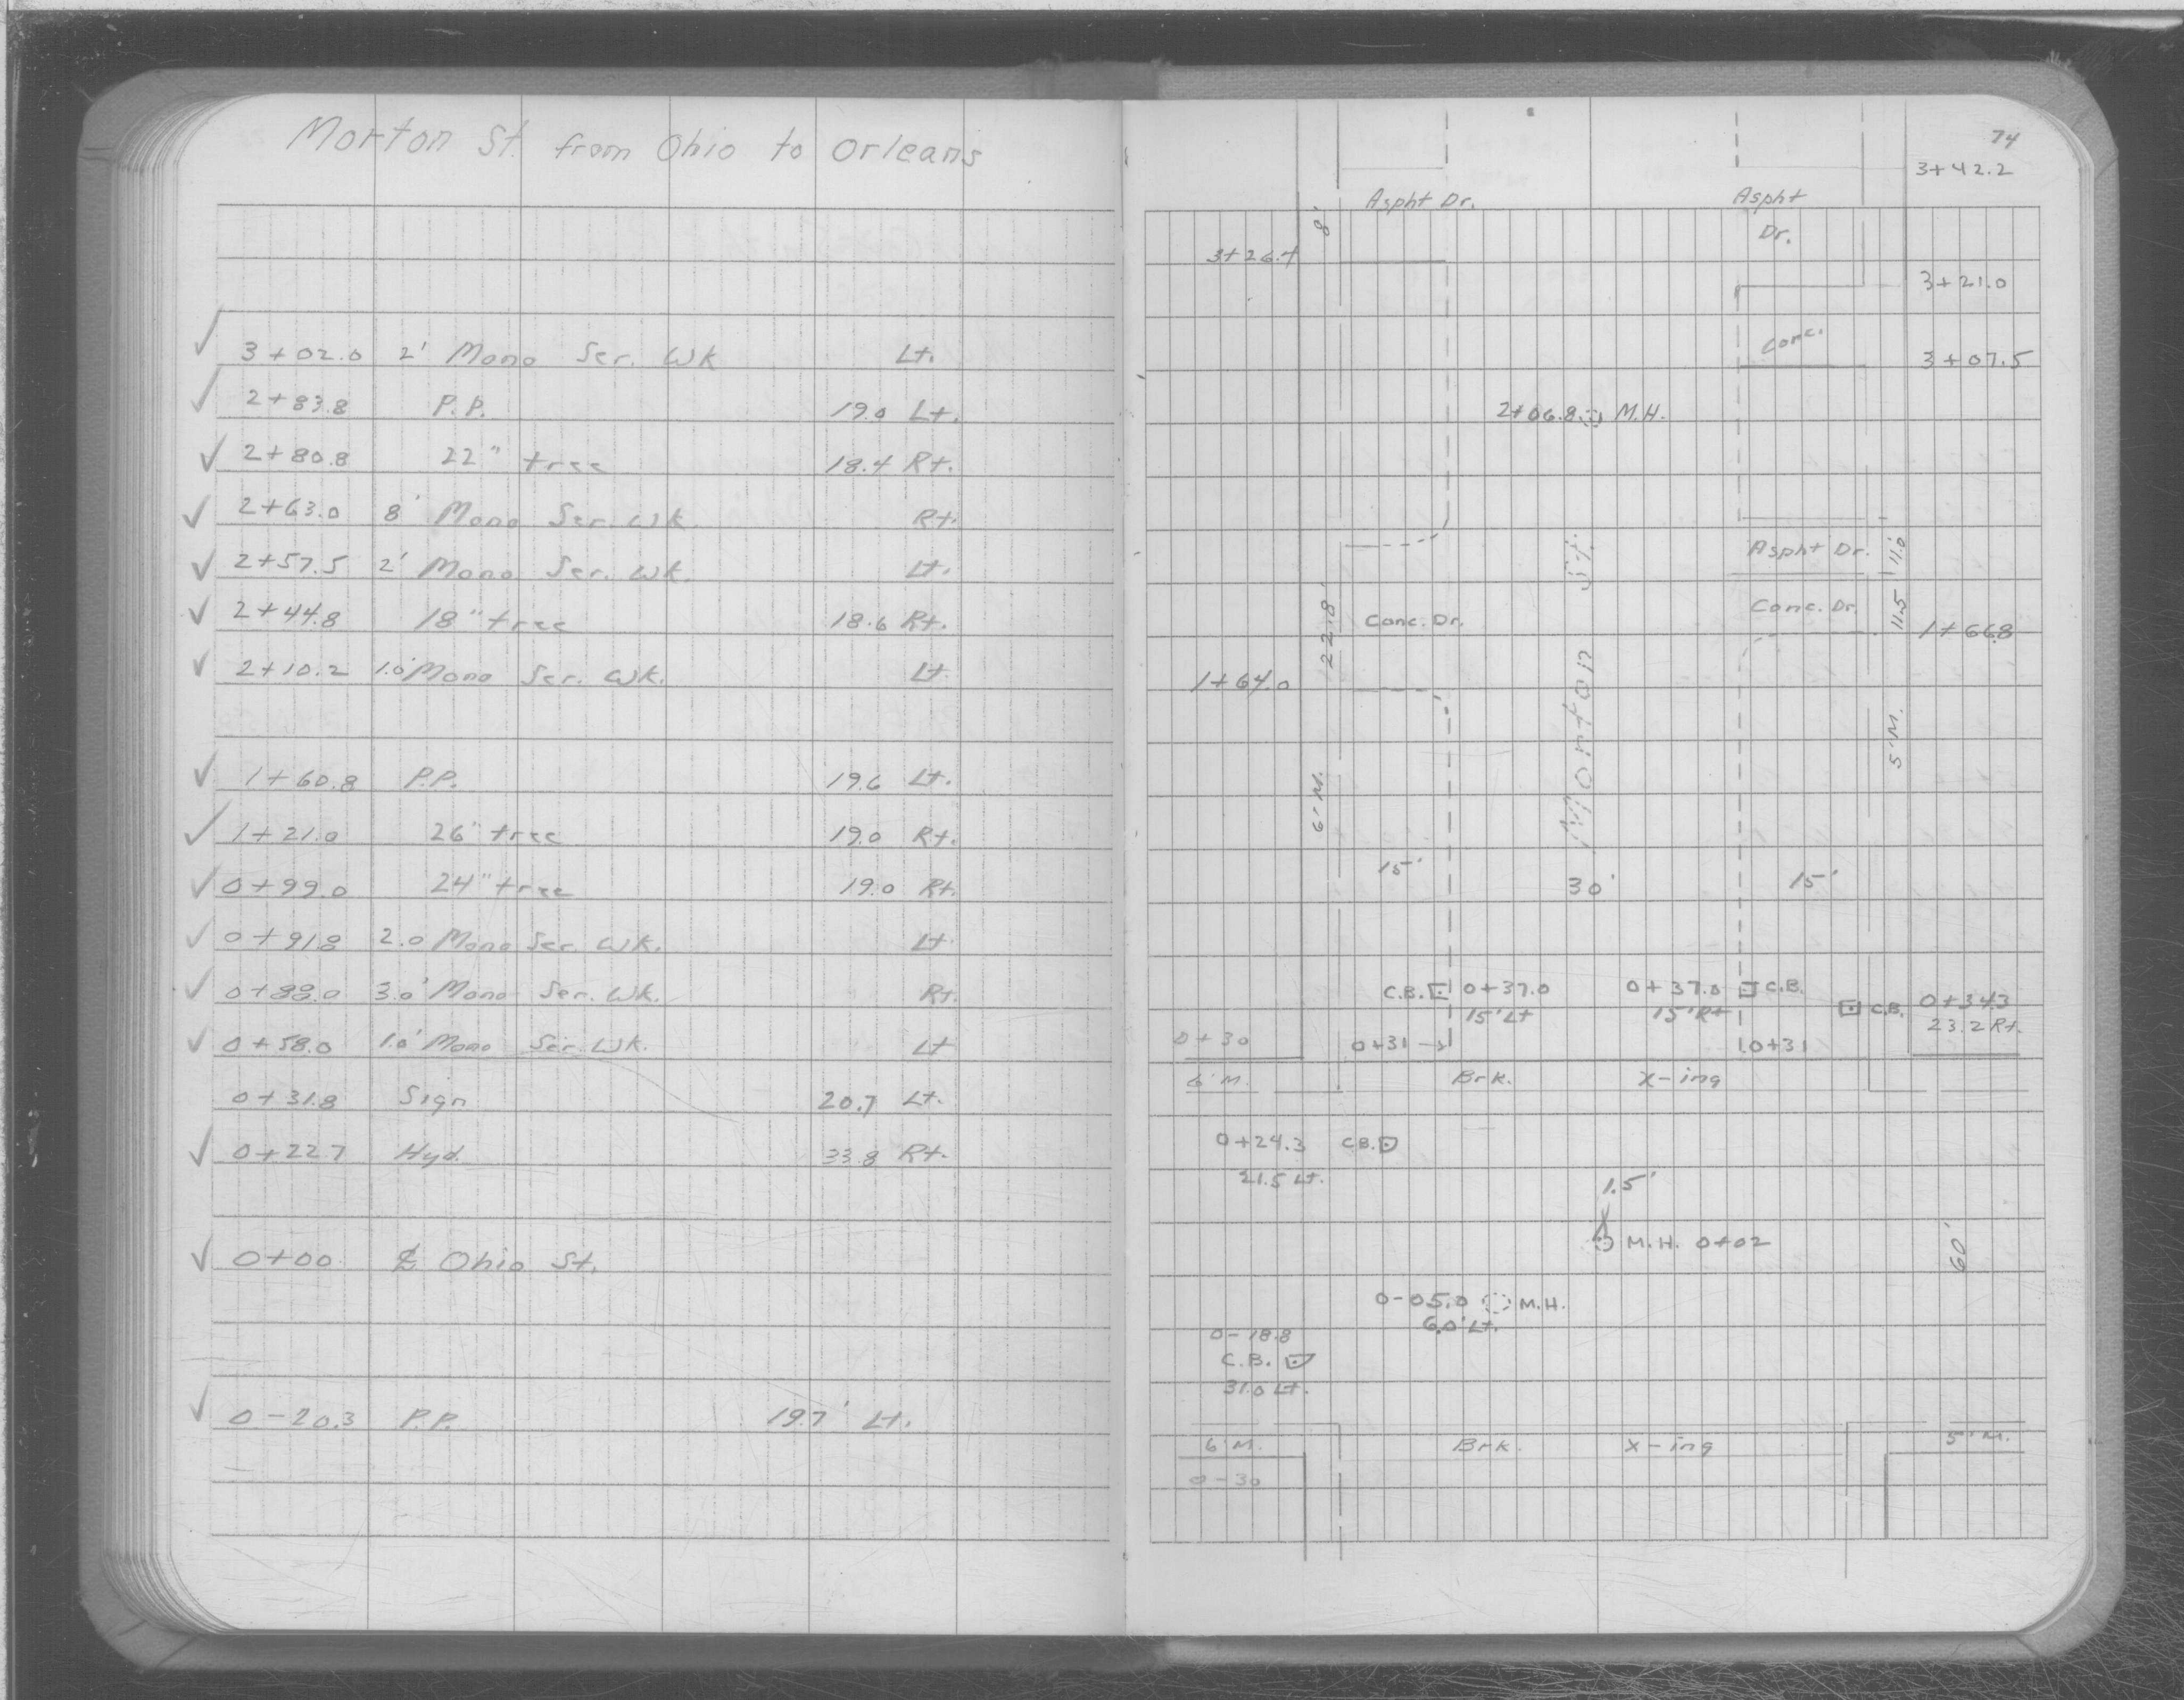 Morton St. from Ohio to Orleans
3+02.0 2' Mono Ser. Wk Lt.
2+83.8 P.P. 19.0 Lt.
2+80.8 22" tree 18.4 Rt.
2+63.0 8' Mono Ser. Wk. Rt.
2+57.5 2' Mono Ser. Wk. Lt.
2+44.8 18" tree 18.6 Rt.
2+10.2 1.0' Mono Ser. Wk. Lt
1+60.8 P.P. 19.6 Lt.
1+21.0 26" tree 19.0 Rt.
0+99.0 24" tree 19.0 Rt.
0+91.8 2.0 Mono Ser. Wk. Lt
0+88.0 3.0' Mono Ser. Wk. Rt.
0+58.0 1.0' Mono Ser. Wk. Lt
0+31.8 Sign 20.7 Lt.
0+22.7 Hyd. 33.8 Rt.
0+00 ℄ Ohio St.
0-20.3 P.P. 19.7' Lt.
74
3+42.2
Aspht Dr. Aspht
8' Dr.
3+26.4
3+21.0
Conc.
3+07.5
2+06.8 M.H.
Aspht Dr. 11.0'
22.8' Conc. Dr. Conc. Dr. 11.5
1+66.8
1+64.0
Morton St.
6' M. 5' M.
15' 30' 15'
C.B. 0+37.0 0+37.0 C.B.
15' Lt 15' Rt
C.B. 0+34.3
23.2 Rt.
0+30 0+31 0+31
6' M. Brk. X-ing
0+24.3 C.B.
21.5 Lt.
1.5'
M.H. 0+02
60'
0-05.0 M.H.
6.0' Lt.
0-18.8
C.B.
31.0 Lt.
6' M. Brk. X-ing 5' M.
0-30